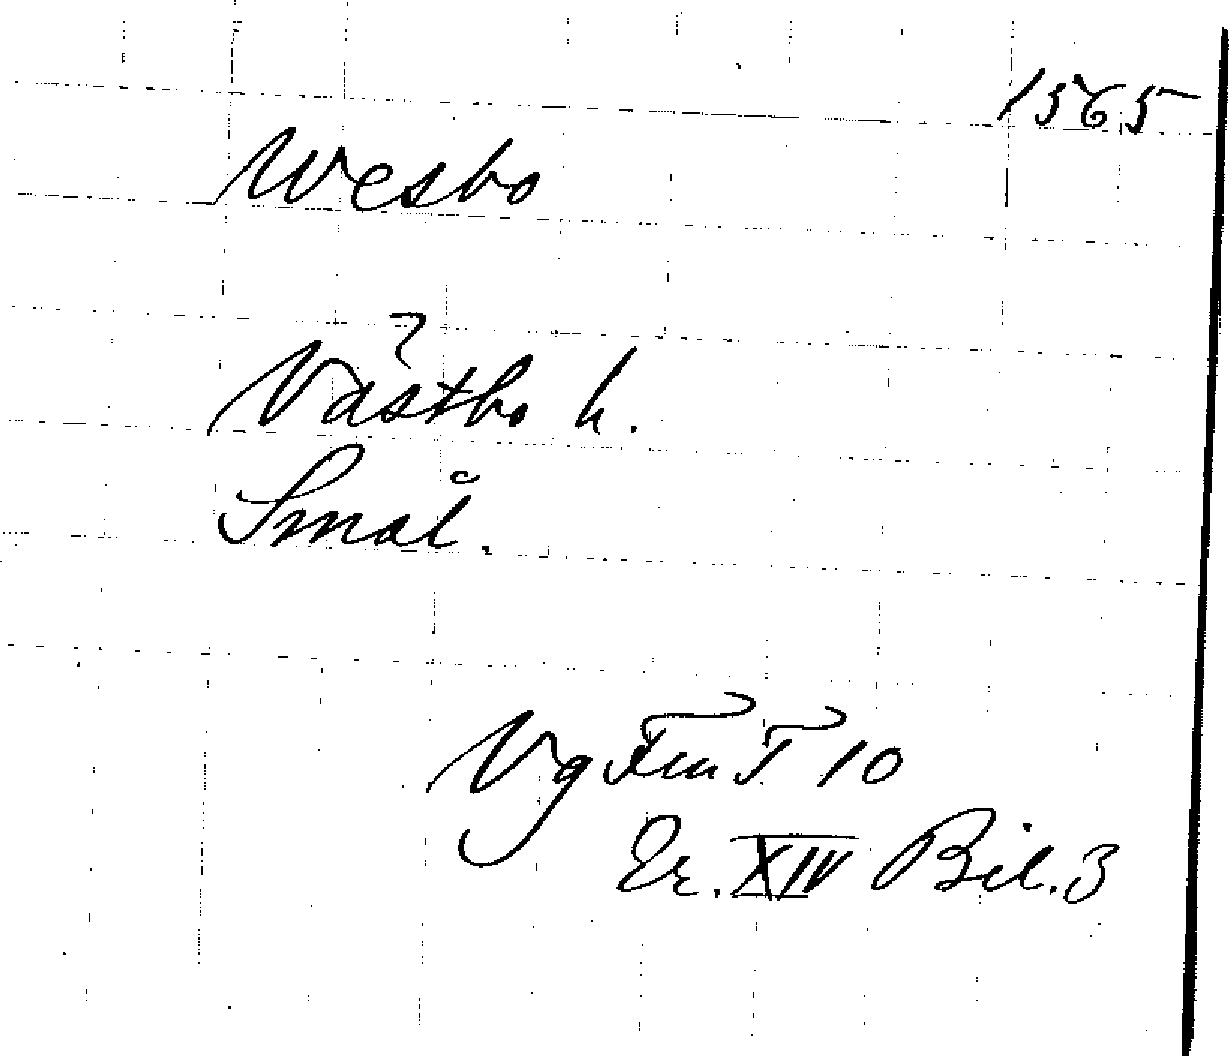 1565
Wesbo
?
Västbo h.
Smål.
Vg FmT 10
Er. XIV Bil. 3